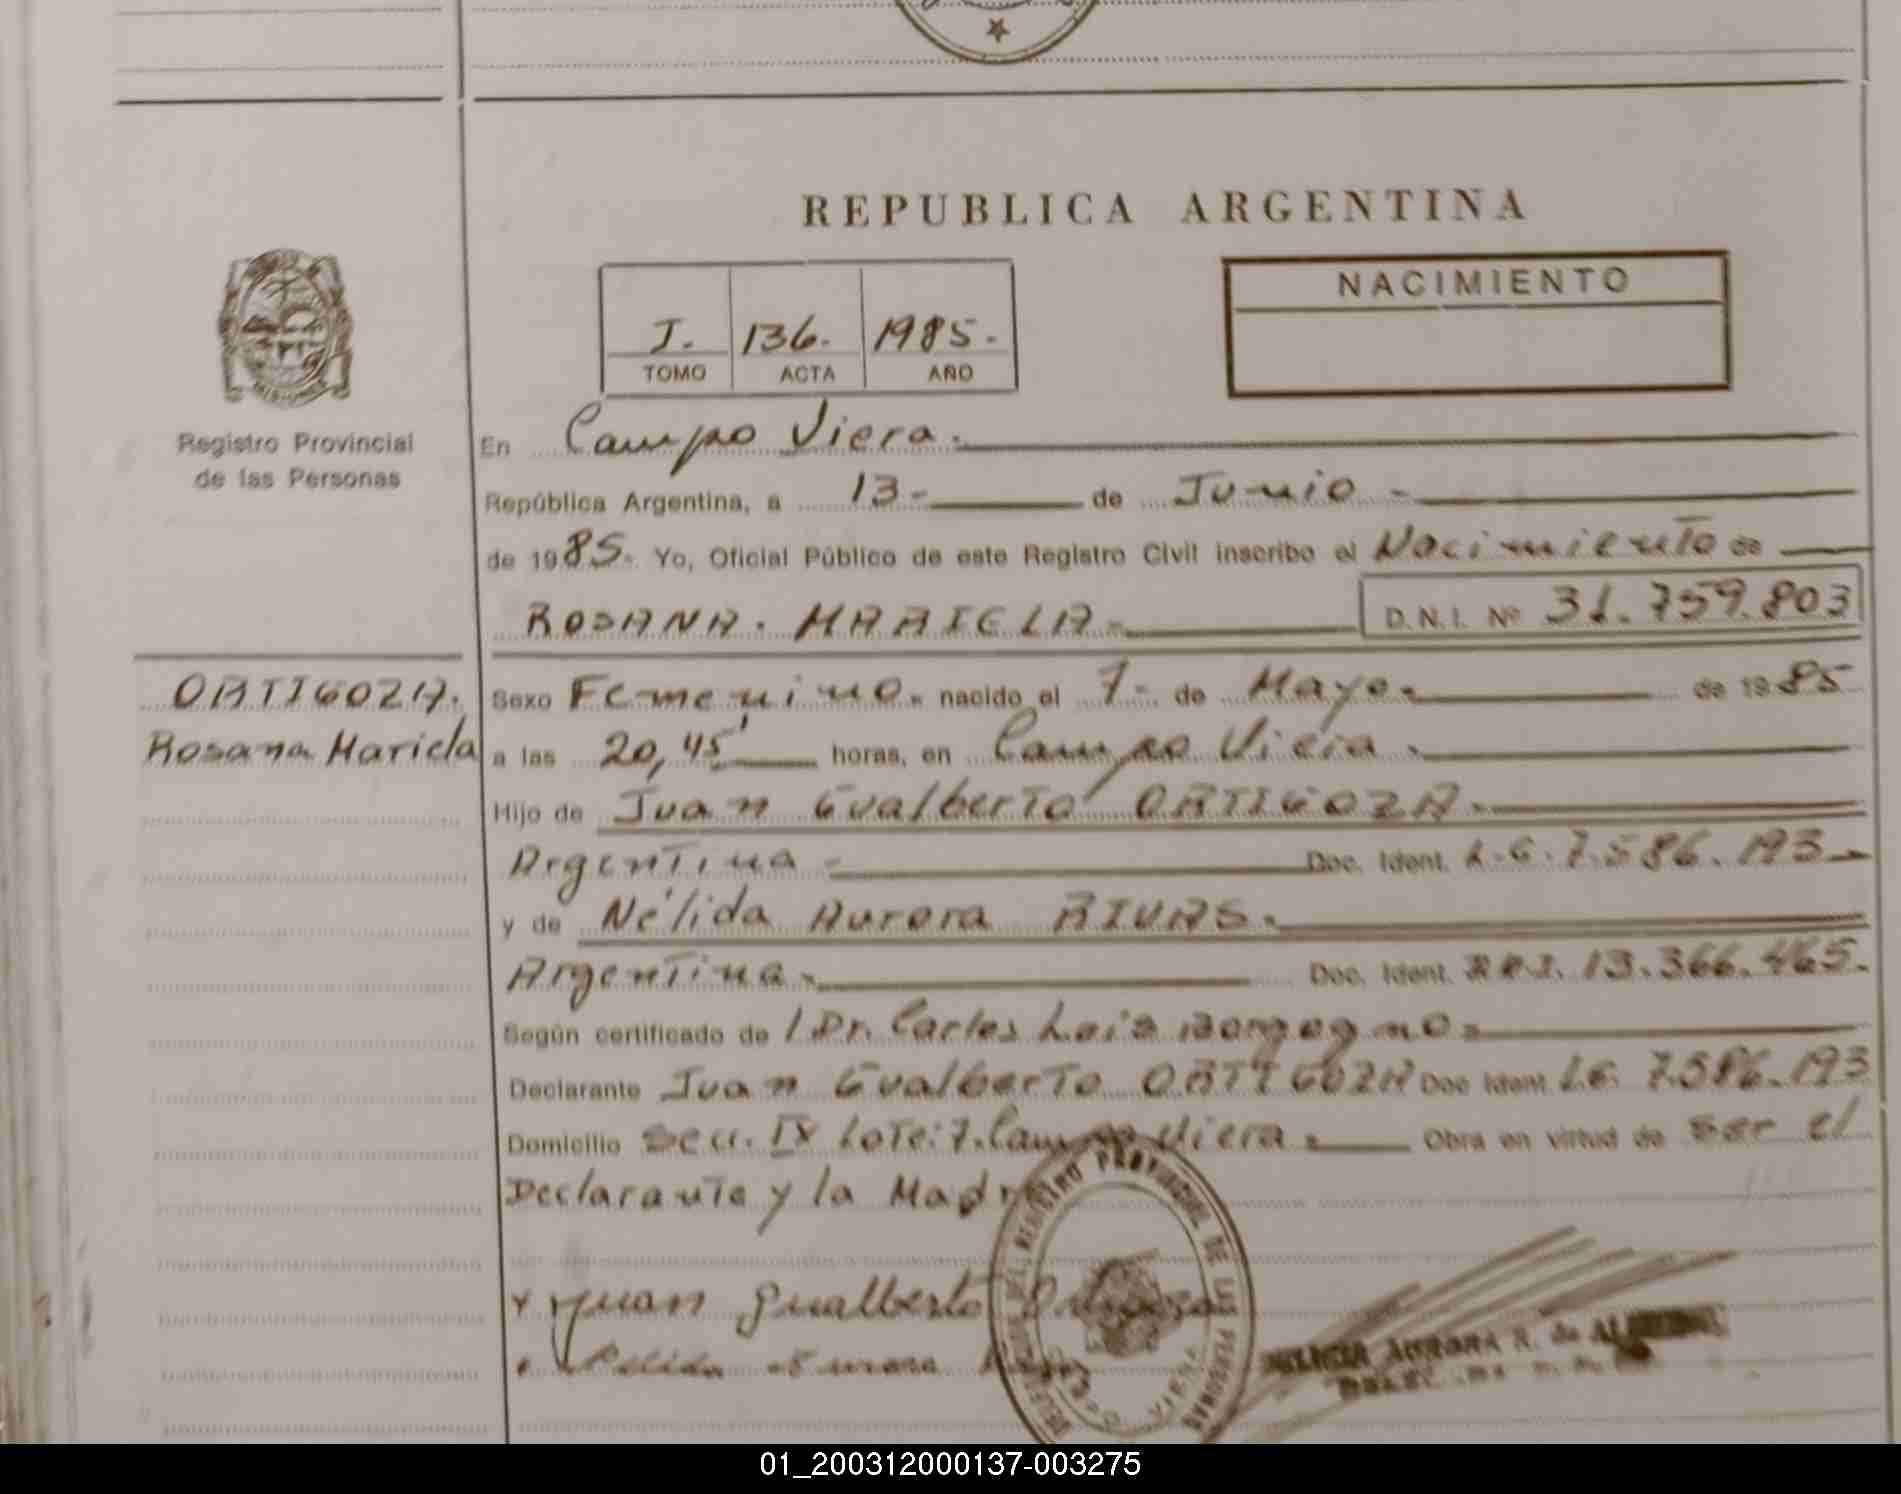 REPUBLICA ARGENTINA
NACIMIENTO
I. 136. 1985.-
TOMO ACTA AÑO
MISIONES
Registro Provincial
de las Personas
En Campo Viera.
República Argentina, a 13- de Junio -
de 1985. Yo, Oficial Público de este Registro Civil inscribo el Nacimiento de
ROSANA. MARIELA- D.N.I. Nº 31.759.803
ORTIGOZA.
Rosana Mariela
Sexo Femenino. nacido el 7- de Mayo. de 1985
a las 20,45' horas, en Campo Viera.
Hijo de Juan Gualberto ORTIGOZA.
Argentina - Doc. Ident. 7.586.193-
y de Nélida Aurora RIVAS.
Argentina. Doc. Ident. 13.366.465.
Según certificado de l Dr. Carlos Luis
Declarante Juan Gualberto ORTIGOZA Doc Ident. 7.586.193
Domicilio Secc. IX Lote: 7. Campo Viera. Obra en virtud de ser el
Declarante y la Madre
Juan Gualberto Ortigoza
Nelida Aurora Rivas
REGISTRO PROVINCIAL DE LAS PERSONAS
VIERA
AURORA R. de
01_200312000137-003275